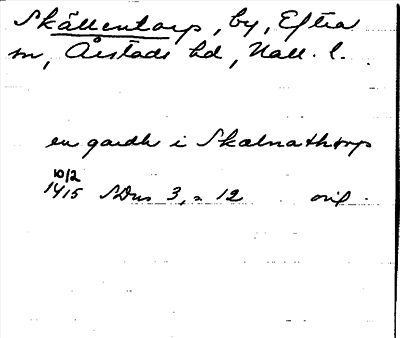 Skällentorp, by, Eftra
sn, Årstads hd, Hall. l.
en gardh i Skælnathorp
10/2
1415 SDns 3, s 12 orig.